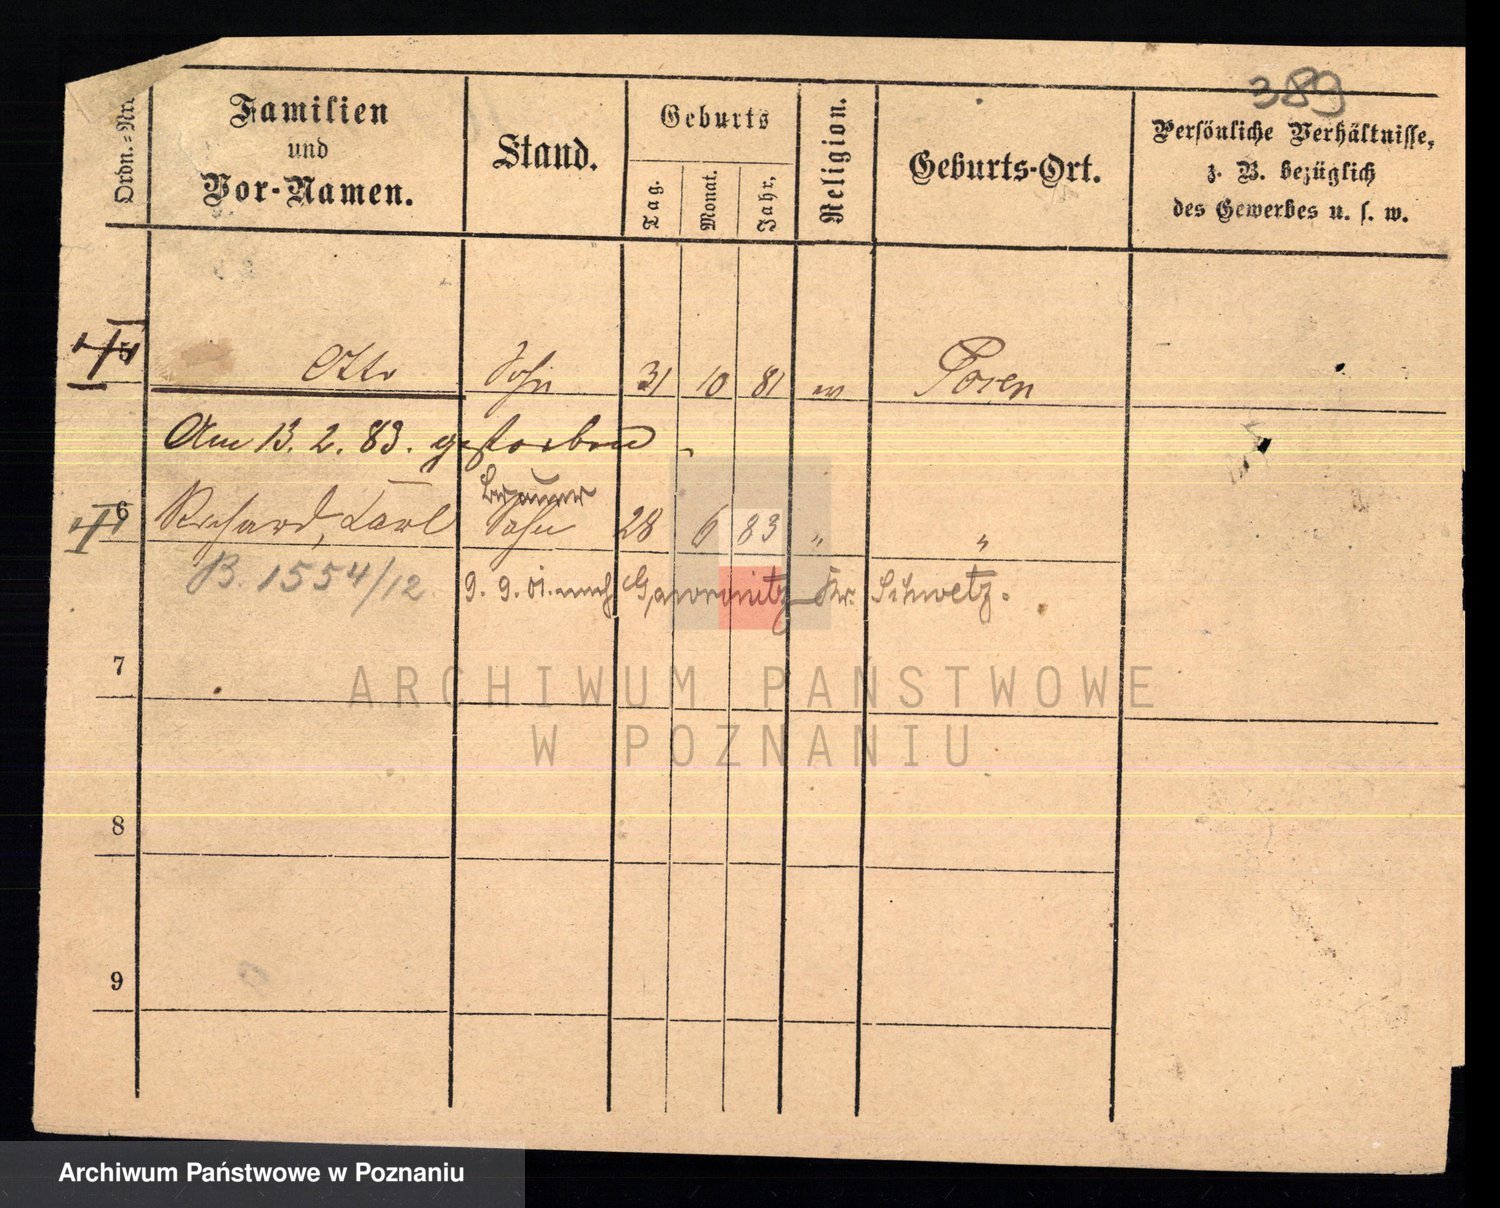 389
Ordn.-Nr.
Familien
und
Vor-Namen.
Stand.
Geburts
Tag.
Monat.
Jahr.
Religion.
Geburts-Ort.
Persönliche Verhältnisse,
z. B. bezüglich
des Gewerbes u. s. w.
5 Otto Sohn 31 10 81 Posen
Am 13. 2. 83. gestorben
6 Richard, Karl Sohn 28 6 83 " "
B. 1554/12 9. 9. 01. nach Kr. Schwetz.
7
ARCHIWUM PAŃSTWOWE
W POZNANIU
8
9
Archiwum Państwowe w Poznaniu